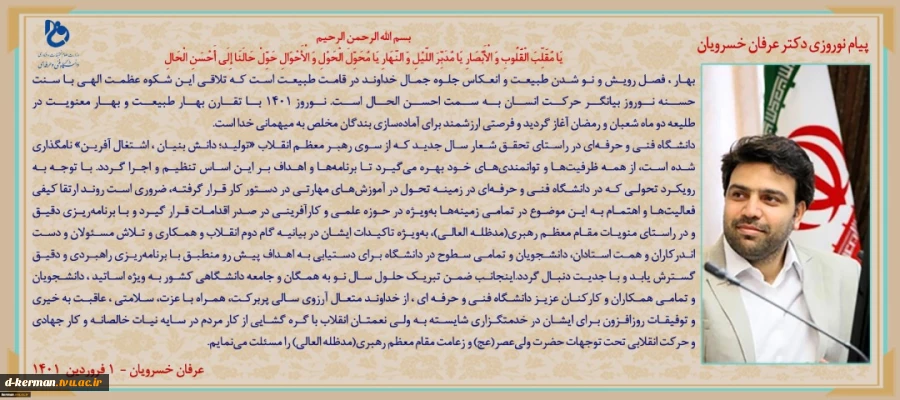 پیام نوروزی دکتر عرفان خسرویان
بسم الله الرحمن الرحیم
یَا مُقَلِّبَ الْقُلُوبِ وَ الْأَبْصَارِ یَا مُدَبِّرَ اللَّیْلِ وَ النَّهَارِ یَا مُحَوِّلَ الْحَوْلِ وَ الْأَحْوَالِ حَوِّلْ حَالَنَا إِلَی أَحْسَنِ الْحَالِ
بهار ، فصل رویش و نو شدن طبیعت و انعکاس جلوه جمال خداوند در قامت طبیعت است که تلاقی این شکوه عظمت الهی با سنت
حسنه نوروز بیانگر حرکت انسان به سمت احسن الحال است. نوروز ۱۴۰۱ با تقارن بهار طبیعت و بهار معنویت در
طلیعه دو ماه شعبان و رمضان آغاز گردید و فرصتی ارزشمند برای آماده‌سازی بندگان مخلص به میهمانی خدا است.
دانشگاه فنی و حرفه‌ای در راستای تحقق شعار سال جدید که از سوی رهبر معظم انقلاب «تولید؛ دانش بنیان ، اشتغال آفرین» نامگذاری
شده است، از همه ظرفیت‌ها و توانمندی‌های خود بهره می‌گیرد تا برنامه‌ها و اهداف بر این اساس تنظیم و اجرا گردد. با توجه به
رویکرد تحولی که در دانشگاه فنی و حرفه‌ای در زمینه تحول در آموزش‌های مهارتی در دستور کار قرار گرفته، ضروری است روند ارتقا کیفی
فعالیت‌ها و اهتمام به این موضوع در تمامی زمینه‌ها به‌ویژه در حوزه علمی و کارآفرینی در صدر اقدامات قرار گیرد و با برنامه‌ریزی دقیق
و در راستای منویات مقام معظم رهبری(مدظله العالی)، به‌ویژه تاکیدات ایشان در بیانیه گام دوم انقلاب و همکاری و تلاش مسئولان و دست
اندرکاران و همت استادان، دانشجویان و تمامی سطوح در دانشگاه برای دستیابی به اهداف پیش رو منطبق با برنامه‌ریزی راهبردی و دقیق
گسترش یابد و با جدیت دنبال گردد.اینجانب ضمن تبریک حلول سال نو به همگان و جامعه دانشگاهی کشور به ویژه اساتید ، دانشجویان
و تمامی همکاران و کارکنان عزیز دانشگاه فنی و حرفه ای ، از خداوند متعال آرزوی سالی پربرکت، همراه با عزت، سلامتی ، عاقبت به خیری
و توفیقات روزافزون برای ایشان در خدمتگزاری شایسته به ولی نعمتان انقلاب با گره گشایی از کار مردم در سایه نیات خالصانه و کار جهادی
و حرکت انقلابی تحت توجهات حضرت ولی‌عصر(عج) و زعامت مقام معظم رهبری(مدظله العالی) را مسئلت می‌نمایم.
عرفان خسرویان - ۱ فروردین ۱۴۰۱
d-kerman.tvu.ac.ir